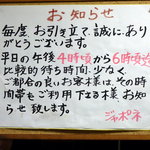 お知らせ
毎度、お引き立て、誠に、あり
がとうございます。
平日の午後4時頃から6時頃迄
比較的、待ち時間、少なく
ご都合の良いお客様は、その時
間帯もご利用下さる様お知
らせ致します。
ジャポネ